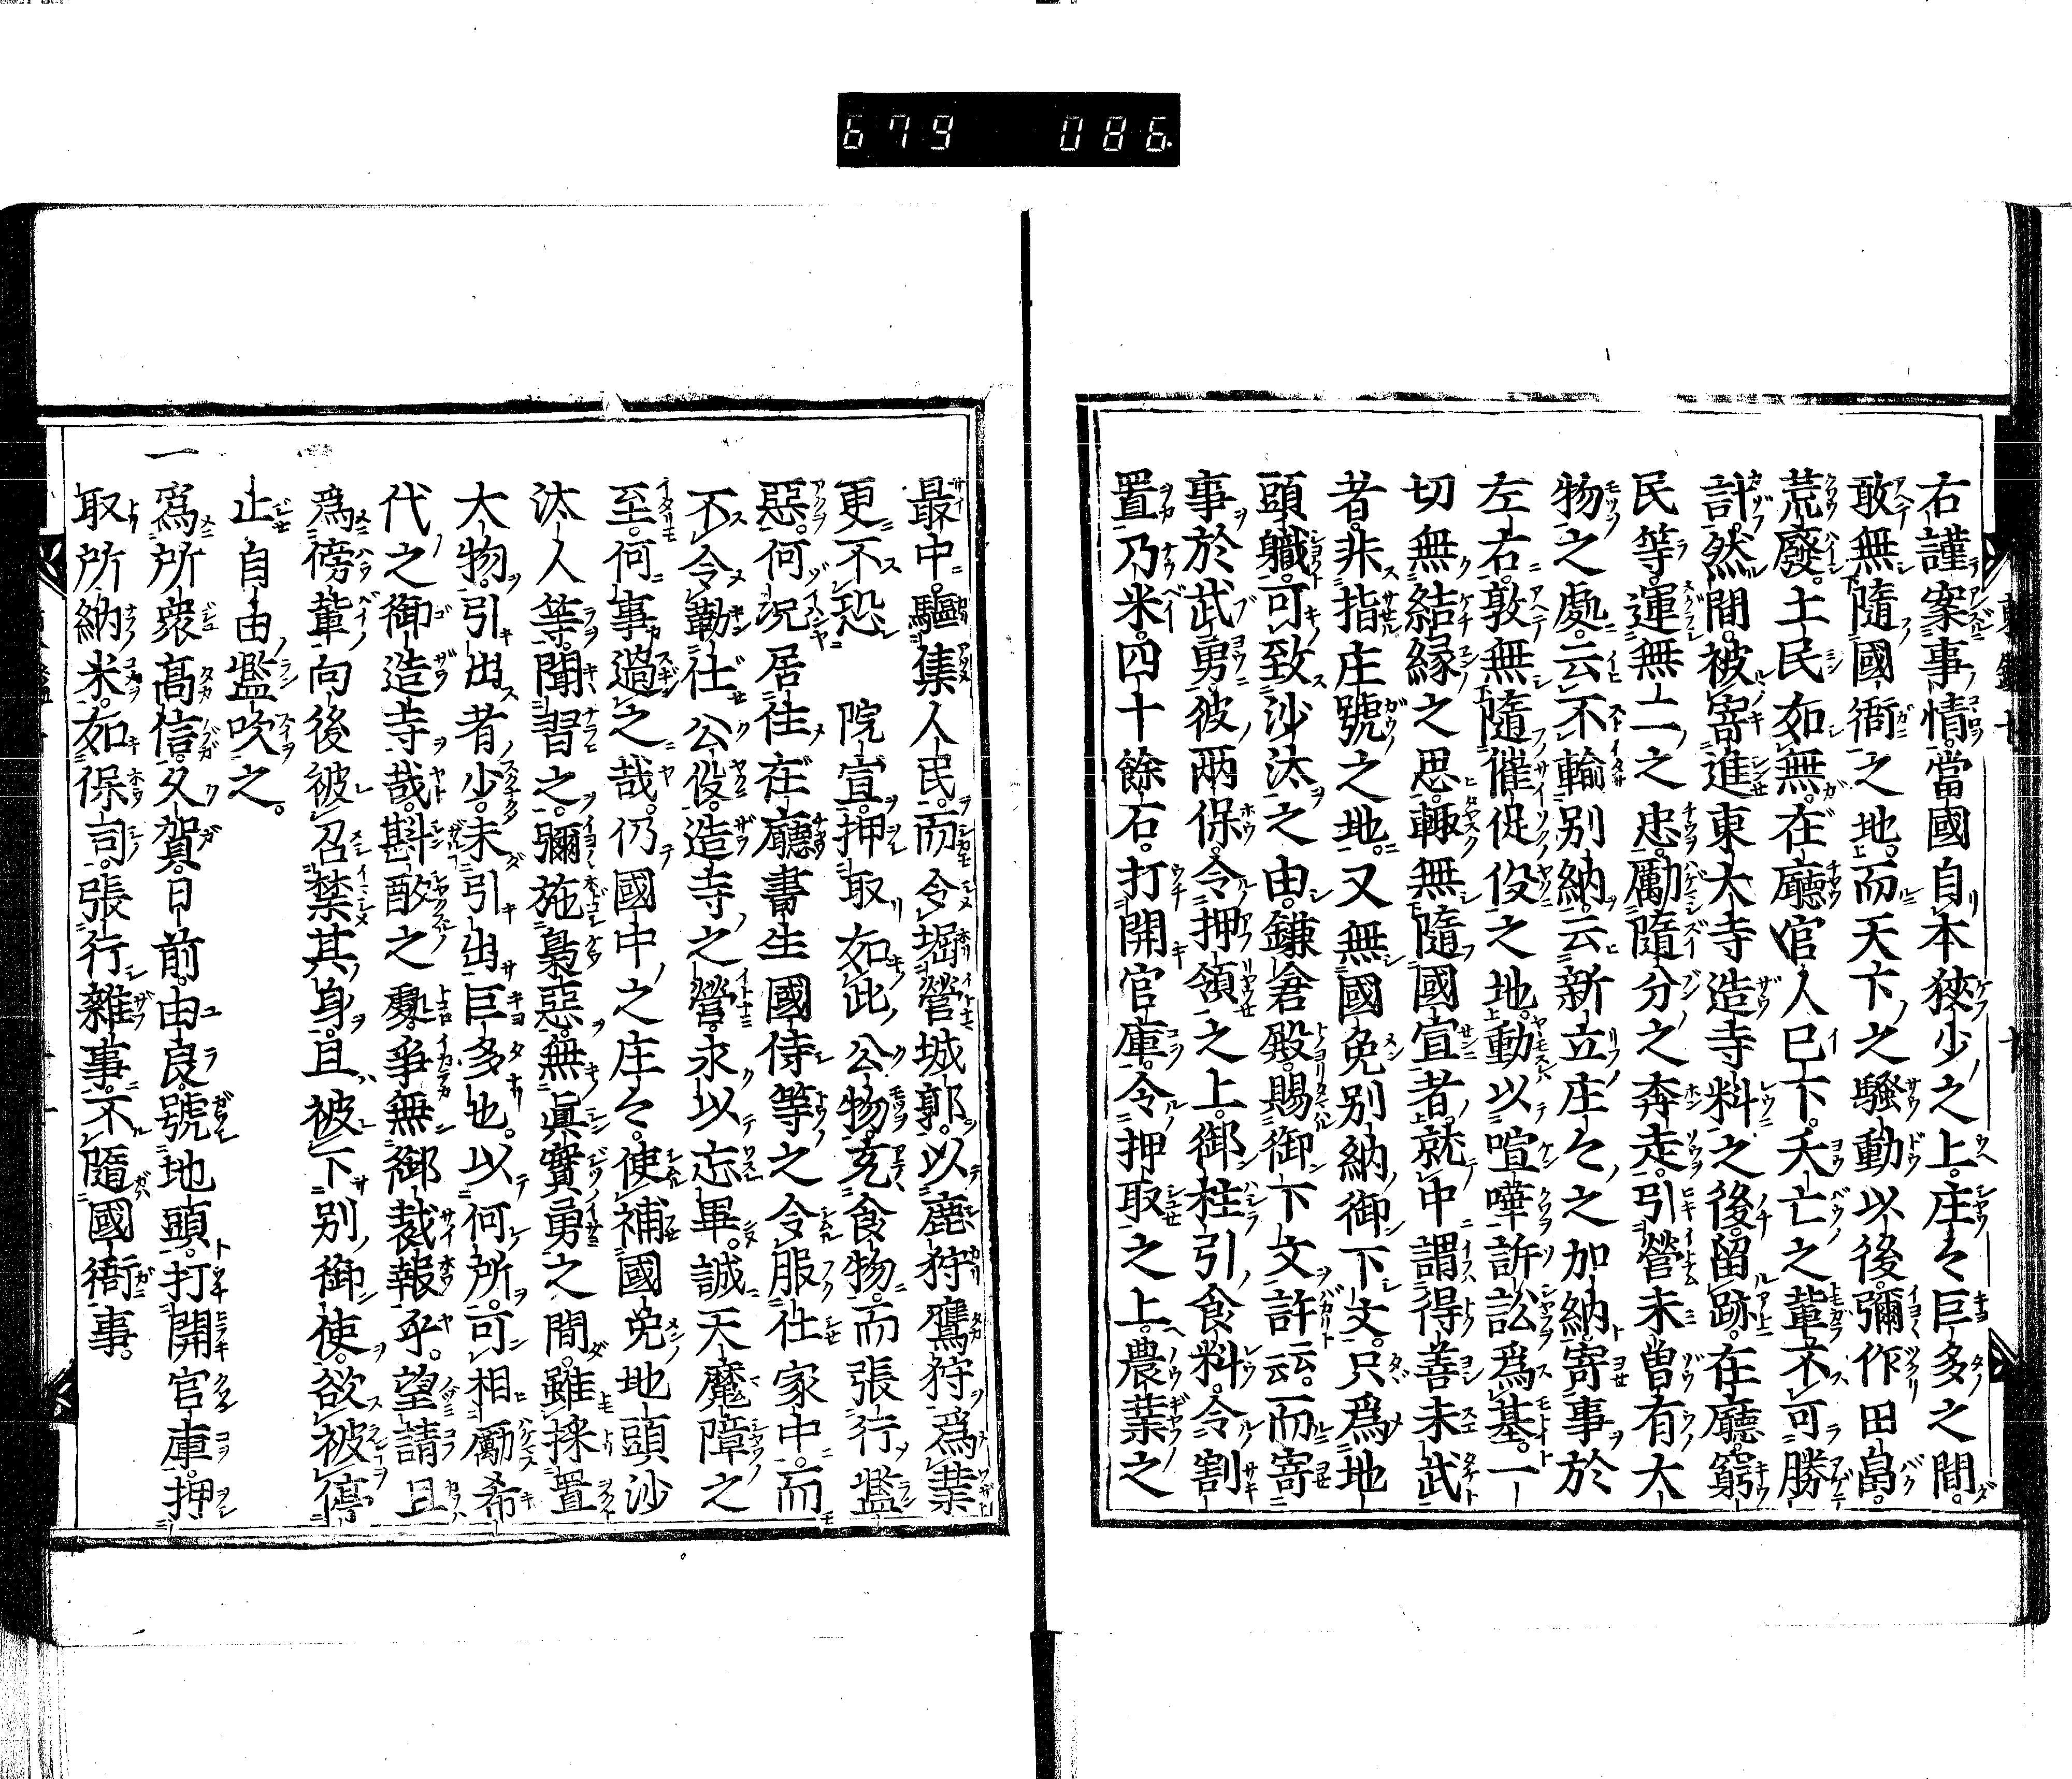 679 086
右謹案事情。當國自本狹少之上。庄々巨多之間。
敢無隨國衙之地。而天下之騷動以後。彌作田畠。
荒廢。土民如無。在廳官人已下。夭亡之輩不可勝
計。然間。被寄進東大寺造寺料之後。留跡。在廳。窮
民等。運無二之忠。勵隨分之奔走。引營未曾有大
物之處。云不輸別納。云新立庄々之加納。寄事於
左右。敢無隨催促役之地。動以喧嘩訴訟爲基。一
切無結縁之思。輙無隨國宣者。就中謂得善末武
者。非指庄號之地。又無國免別納御下文。只爲地
頭職。可致沙汰之由。鎌倉殿。賜御下文許云云。而寄
事於武勇。彼兩保。令押領之上。御柱引食料。令割
置乃米。四十餘石。打開官庫。令押取之上。農業之
最中。驅集人民。而令堀營城郭。以鹿狩鷹狩爲業
更不恐　院宣。押取如此公物。充食物。而張行濫
惡。何況居住在廳書生國侍等之令服仕家中。而
不令勤仕公役。造寺之營。永以忘畢。誠天魔障之
至。何事過之哉。仍國中之庄々。使補國免地頭沙
汰人等。聞習之。彌施梟惡。無眞實勇之間。雖採置
大物。引出者少。未引出巨多也。以何所。可相勵希
代之御造寺哉。斟酌之處。爭無御裁報乎。望請且
爲傍輩向後被召禁其身。且被下別御使。欲被停
止自由濫吹之。
一爲所衆高信。久賀。日前。由良。號地頭。打開官庫。押
取所納米。如保司。張行雜事。不隨國衙事。